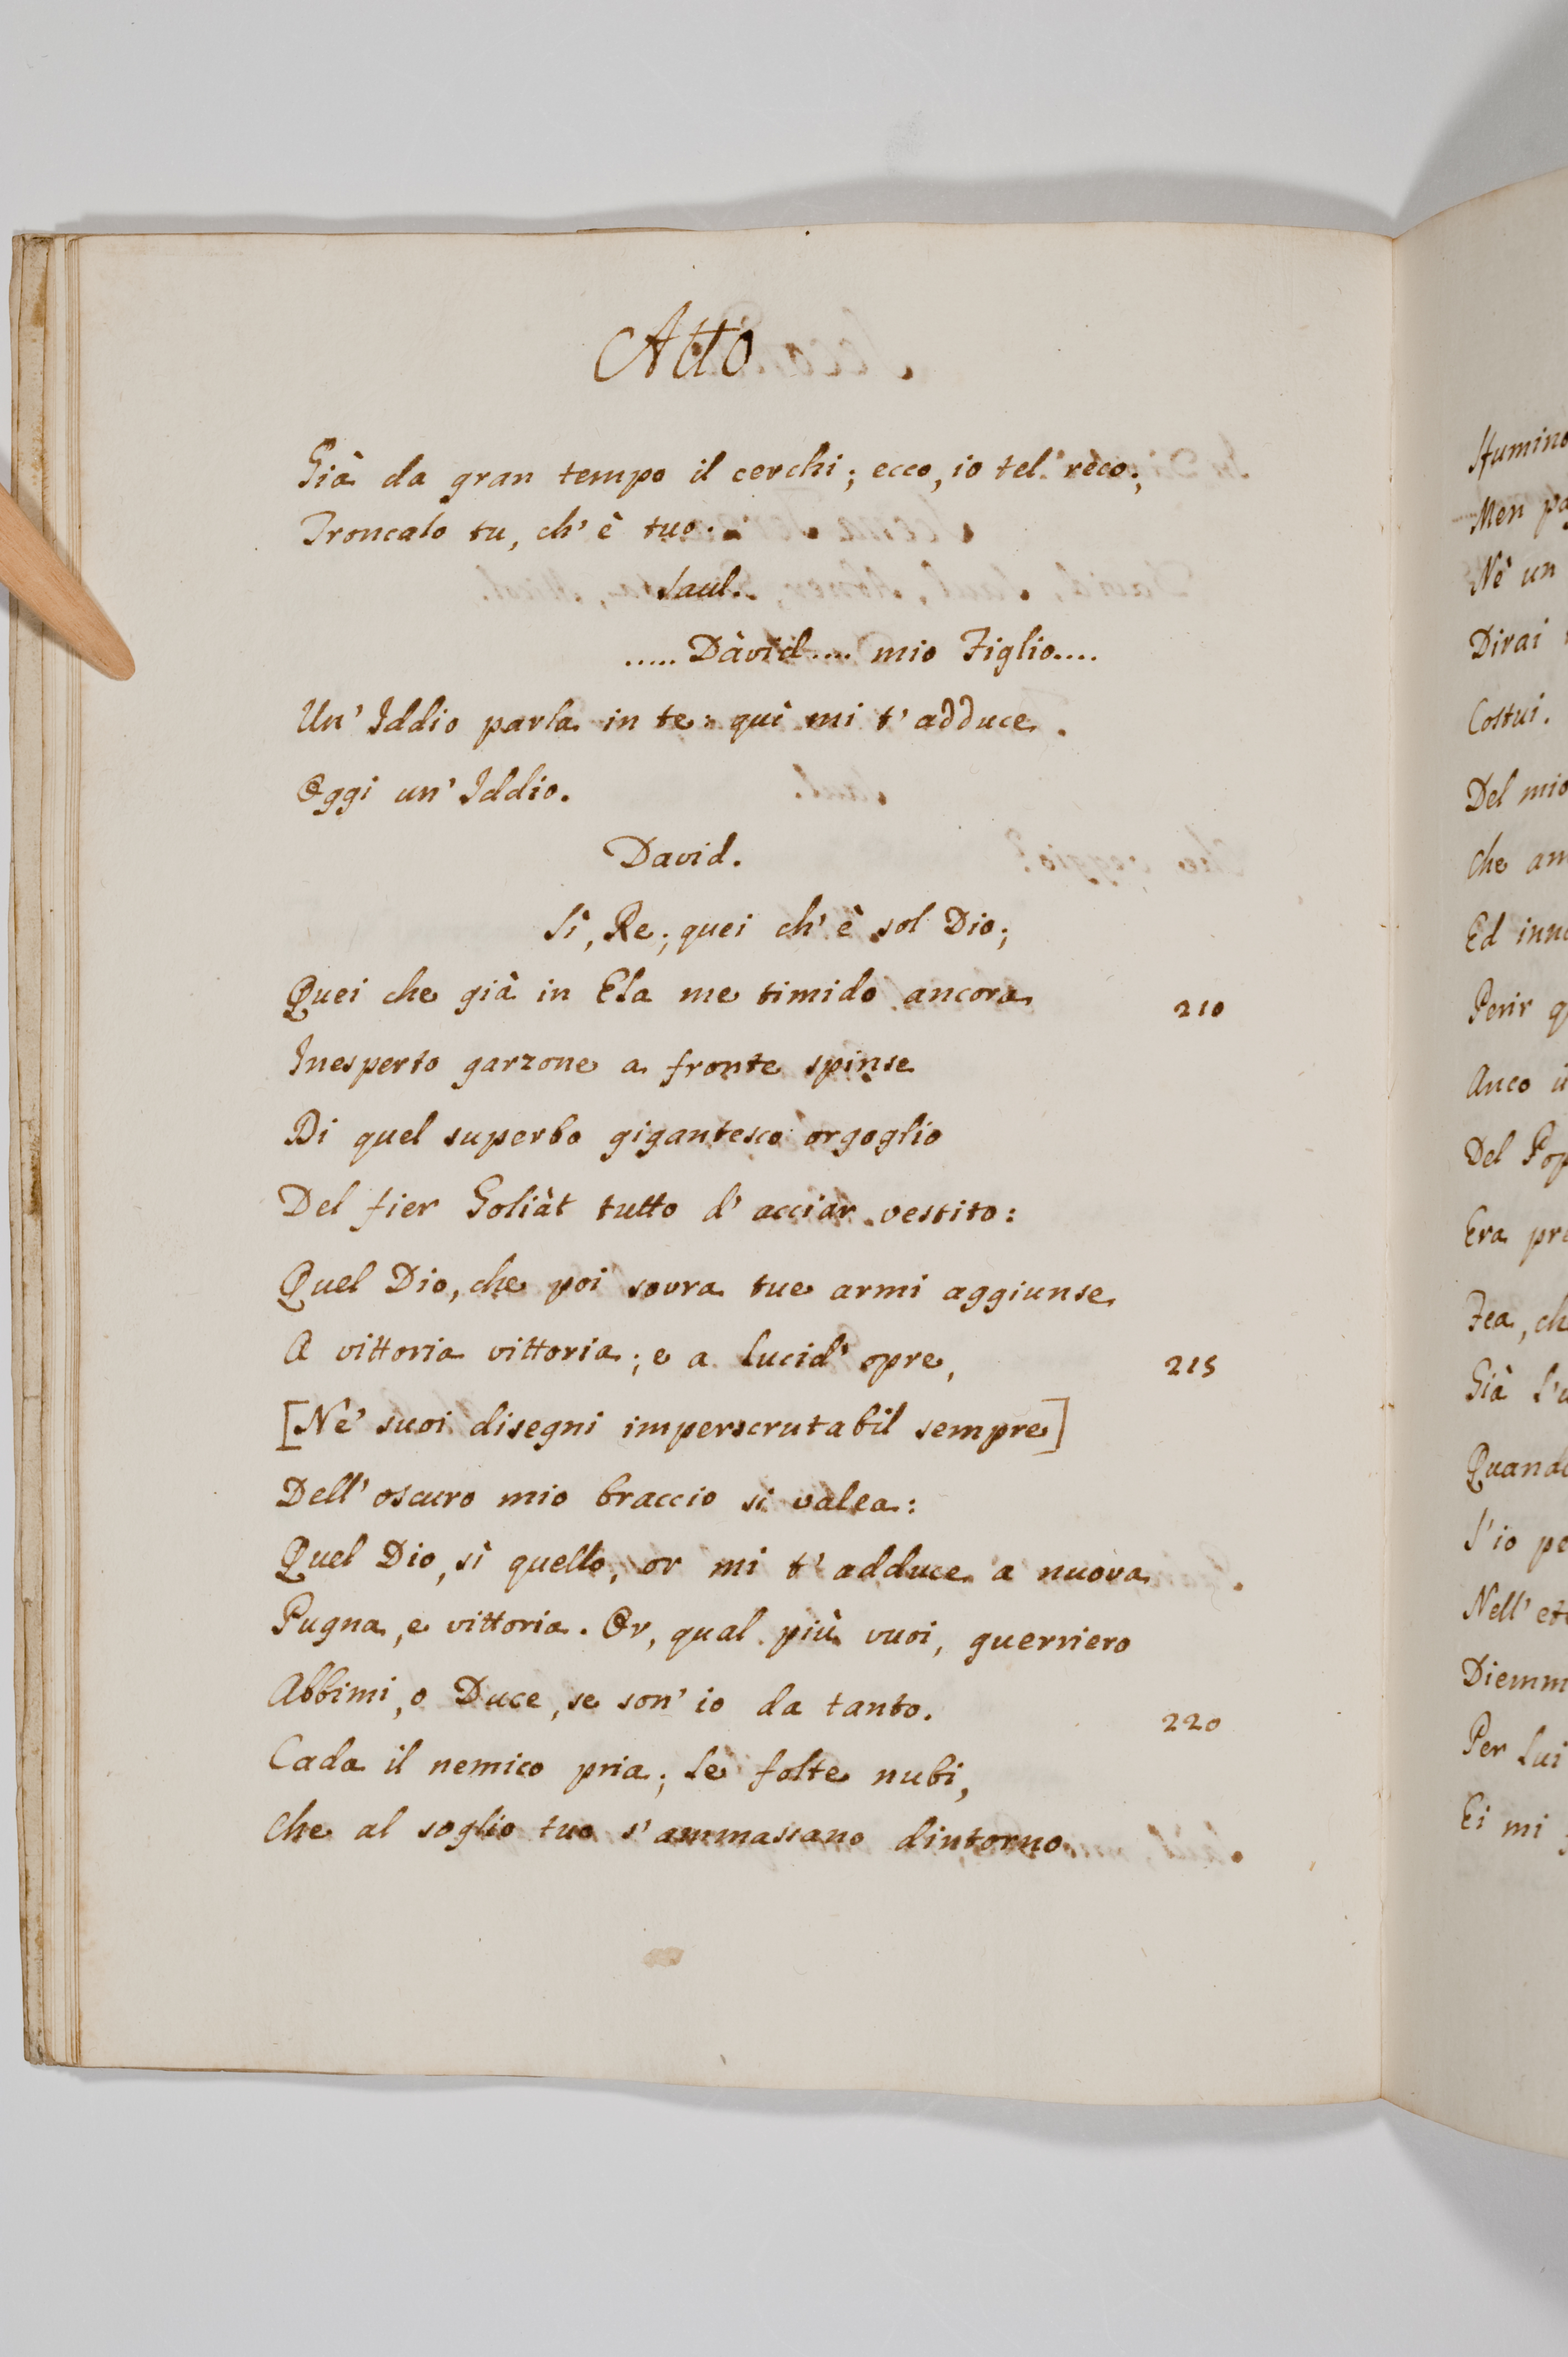 Atto
Già da gran tempo il cerchi; ecco, io tel reco;
Troncalo tu, ch' è tuo.
Saul.
..... Dàvid .... mio Figlio....
Un' Iddio parla in te: quì mi t' adduce
Oggi un' Iddio.
David.
Sì, Re; quei ch' è sol Dio;
Quei che già in Ela me timido ancora
210
Inesperto garzone a fronte spinse
Di quel superbo gigantesco orgoglio
Del fier Goliàt tutto d' acciar vestito:
Quel Dio, che poi sovra tue armi aggiunse
A vittoria vittoria; e a lucid' opre,
215
[Nè' suoi disegni imperscrutabil sempre]
Dell' oscuro mio braccio si valea:
Quel Dio, sì quello, or mi t' adduce a nuova
Pugna, e vittoria. Or, qual più vuoi, guerriero
Abbimi, o Duce, se son' io da tanto.
220
Cada il nemico pria; le folte nubi,
Che al soglio tuo s' ammassano dintorno
Men
Nè un
Dirai
Costui.
Del mio
Che
Ed
Perir
Anco
Del
Era
Fea,
Già
S' io
Diemm
Per lui
Ei mi